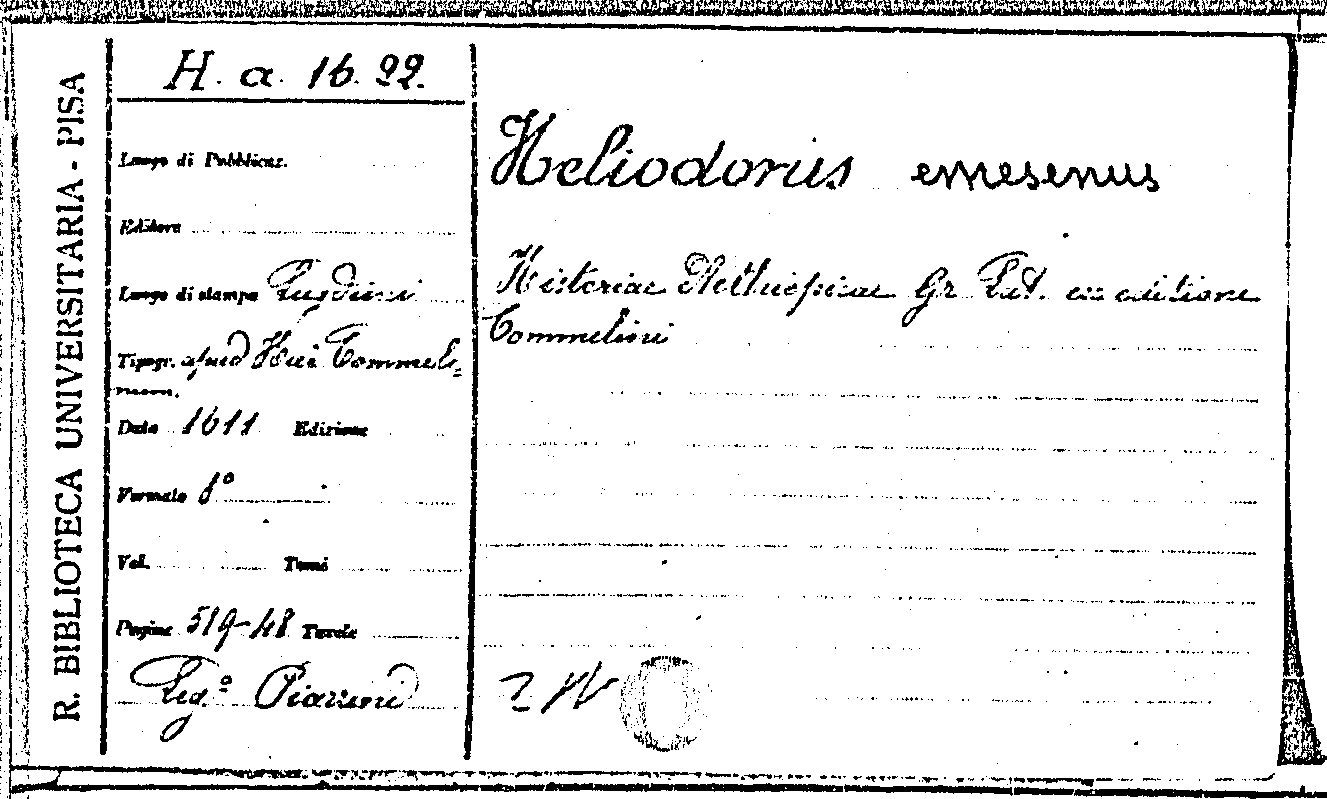 R. BIBLIOTECA UNIVERSITARIA - PISA
H. a. 16. 22.
Luogo di Pubblicaz.
Editore
Luogo di stampa Lugduni
Tipogr. apud Hui Commeli-
num.
Data 1611 Edizione
Formato 8°
Vol. Tomi
Pagine 519-48 Tavole
Leg.º Piazzini
Heliodorus emesenus
Historiae Aethiopicae Gr Lat. ex editione
Commelini